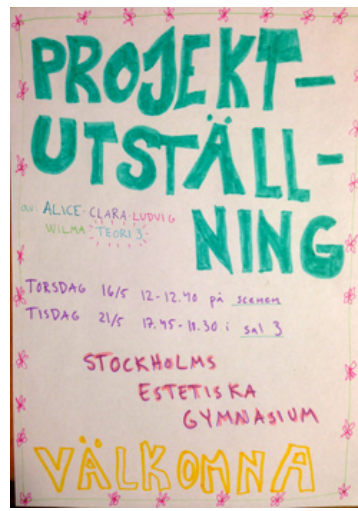 PROJEKT-
UTSTÄLL-
NING
av: ALICE · CLARA · LUDVIG
WILMA · TEORI 3
TORSDAG 16/5 12-12.40 på scenen
TISDAG 21/5 17.45-18.30 i sal 3
STOCKHOLMS
ESTETISKA
GYMNASIUM
VÄLKOMNA